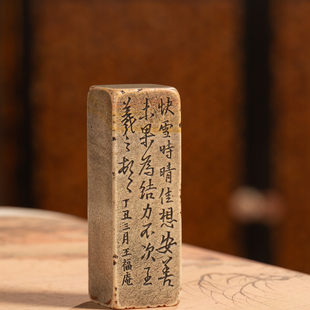 快雪時晴佳想安善
未果為結力不次王
羲之頓首丁丑三月王福庵